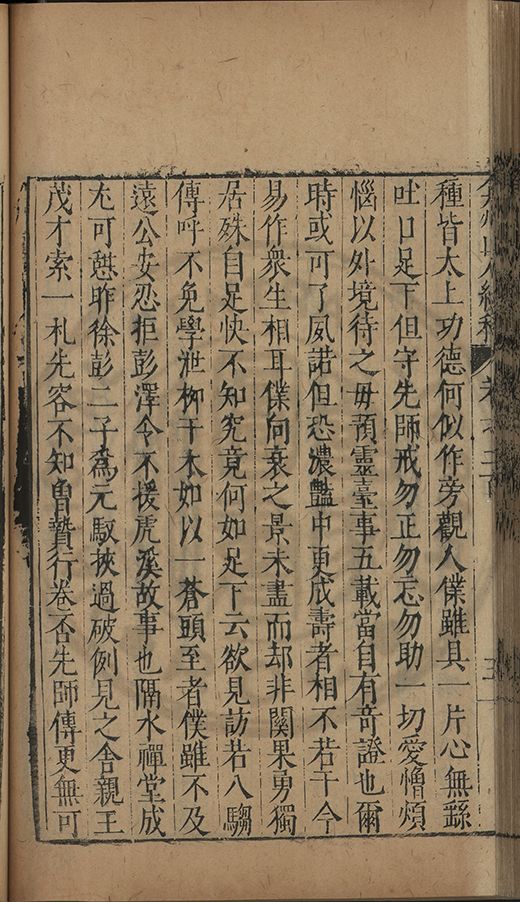 種皆太上功德何似作旁觀人僕雖具一片心無繇
吐口足下但守先師戒勿正勿忘勿助一切愛憎煩
惱以外境待之毋預靈臺事五載當自有奇證也爾
時或可了夙諾但恐濃豔中更成壽者相不若于今
易作衆生相耳僕向衰之景未盡而却非關果勇獨
居殊自足快不知究竟何如足下云欲見訪若八騶
傳呼不免學泄柳干木如以一蒼頭至者僕雖不及
遠公安忍拒彭澤令不援虎溪故事也隔水禪堂成
尤可憇昨徐彭二子爲元馭挾過破例見之舍親王
茂才索一札先容不知曾贄行卷否先師傳更無可